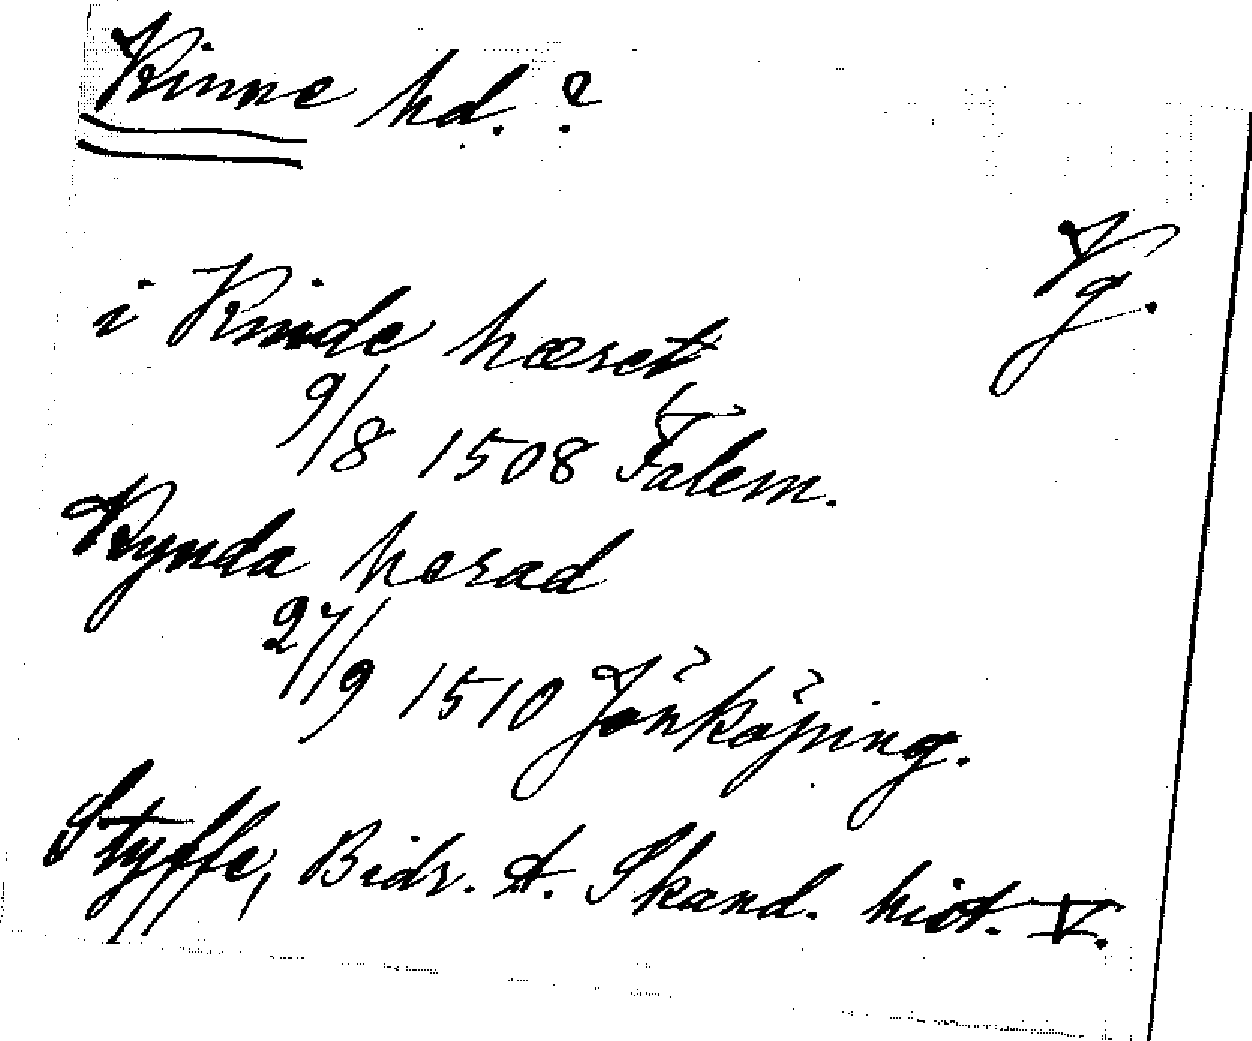 Kinne hd. ?
Vg.
i Kinde hæret
9/8 1508 Falem.
Kynda herad
27/9 1510 Jönköping.
Styffe, Bidr. t. Skand. hist. V.